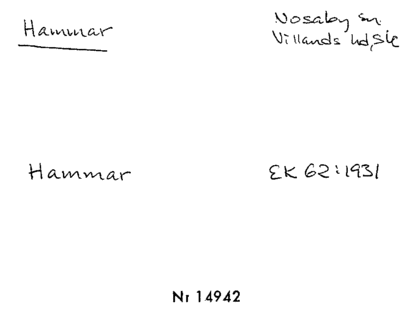 Hammar
Nosaby sn.
Villands hd, Sk
Hammar
EK 62:1931
Nr 14942